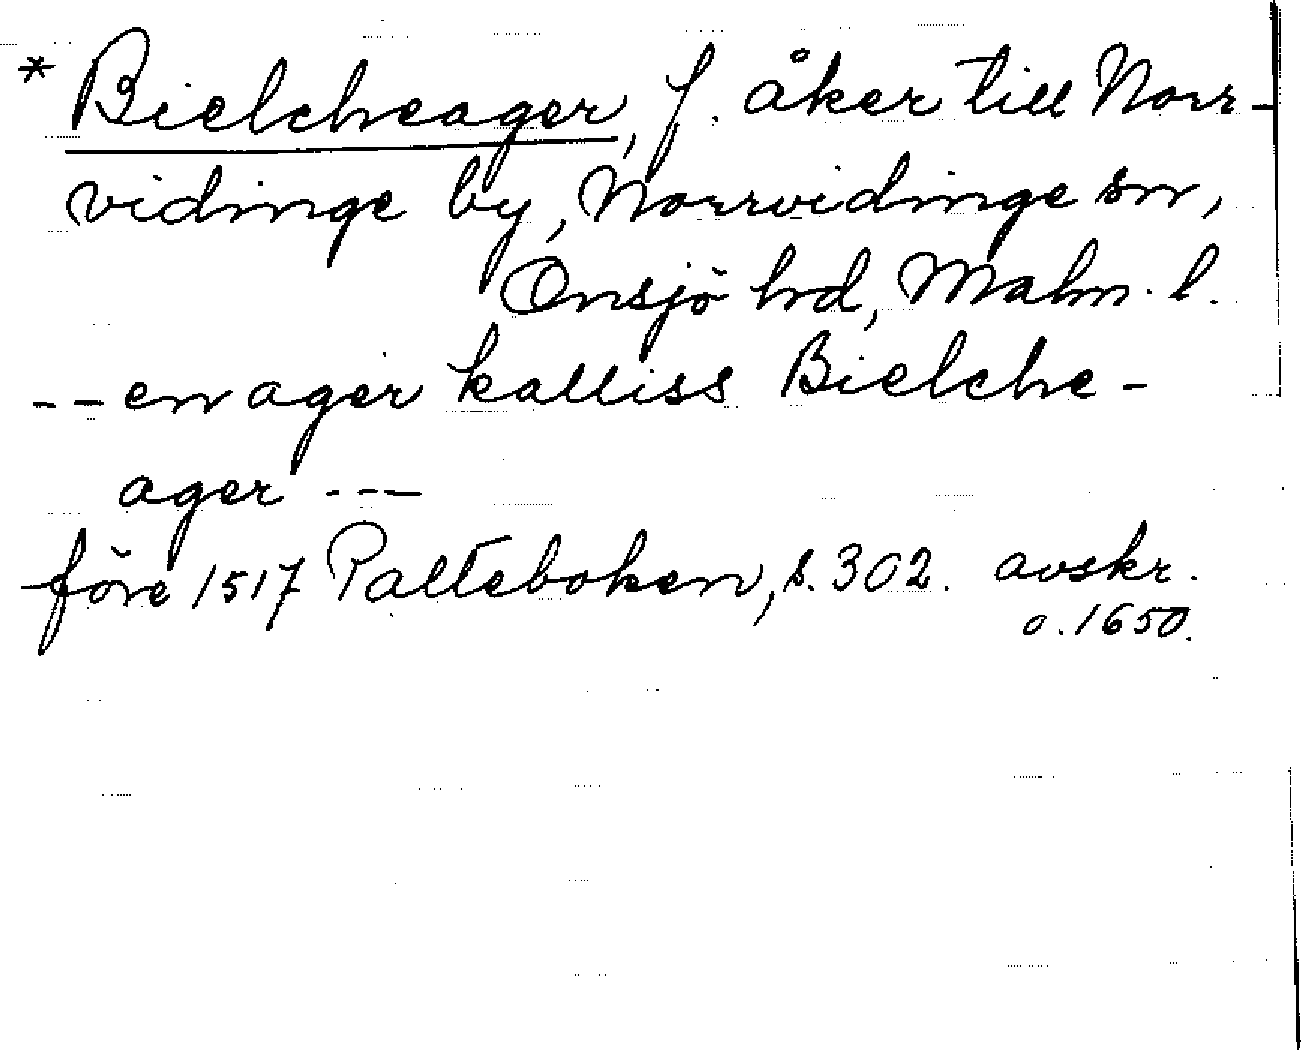 * Bielcheager, f. åker till Norr-
vidinge by, Norrvidinge sn,
Onsjö hrd, Malm. l.
-- en ager kalliss Bielche-
ager ---
före 1517 Palteboken, s. 302. avskr.
o. 1650.